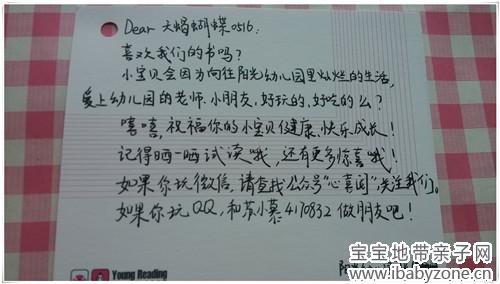 Dear 大蝎蝴蝶0516:
喜欢我们的书吗?
小宝贝会因为向往阳光幼儿园里灿烂的生活,
爱上幼儿园的老师、小朋友、好玩的、好吃的么?
嘻嘻,祝福你的小宝贝健康、快乐成长!
记得晒一晒试读哦,还有更多惊喜哦!
如果你玩微信,请查找公众号"心喜阅"关注我们。
如果你玩QQ,和苏小慕4170832做朋友吧!
Young Reading
宝宝地带亲子网
www.ibabyzone.cn